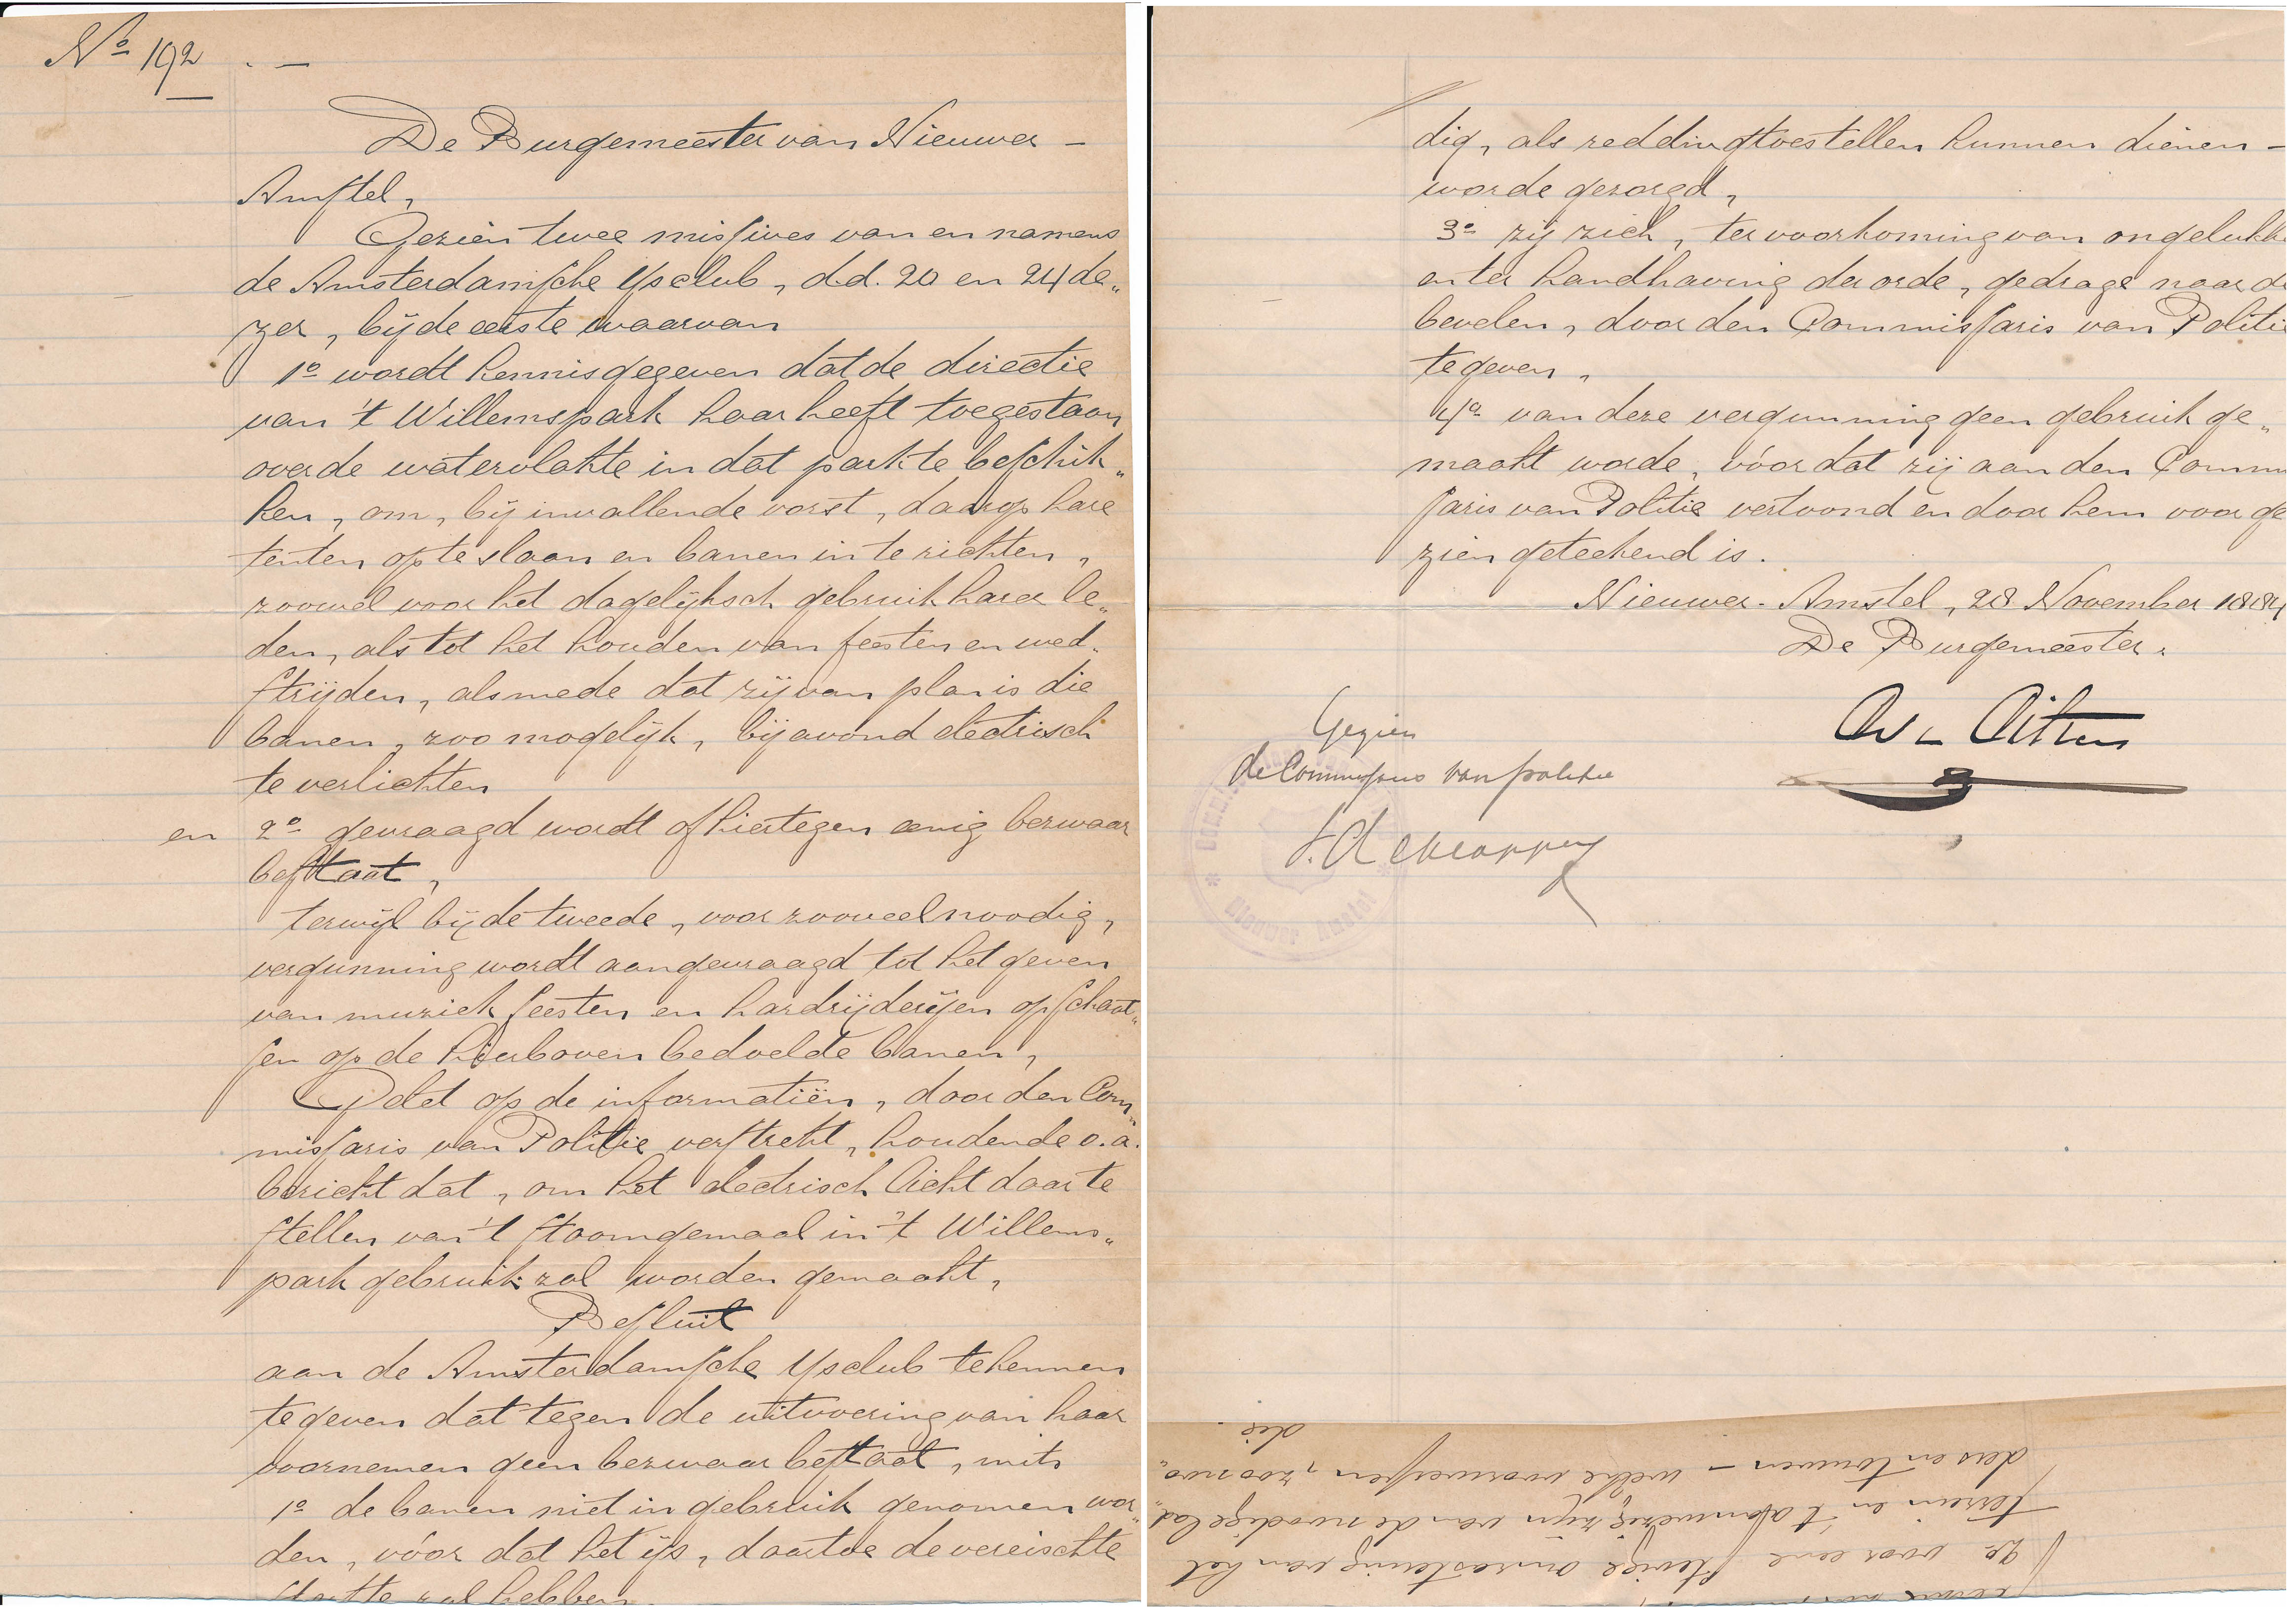 No 192.—
De Burgemeester van Nieuwer-
Amstel,
Gezien twee missives van en namens
de Amsterdamsche IJsclub, d.d. 20 en 24 de„
zer, bij de eerste waarvan
1o wordt kennisgegeven dat de directie
van 't Willemspark haar heeft toegestaan
over de watervlakte in dat park te beschik„
ken, om, bij invallende vorst, daarop hare
tenten op te slaan en banen in te richten,
zoowel voor het dagelijksch gebruik harer le„
den, als tot het houden van feesten en wed„
strijden, alsmede dat zij van plan is die
banen, zoo mogelijk, bij avond electrisch
te verlichten
en 2o gevraagd wordt of hiertegen eenig bezwaar
bestaat,
terwijl bij de tweede, voor zooveel noodig,
vergunning wordt aangevraagd tot het geven
van muziekfeesten en hardrijderijen op schaat„
sen op de hierboven bedoelde banen,
Gelet op de informatiën, door den Com„
missaris van Politie verstrekt, houdende o.a.
bericht dat, om het electrisch licht daar te
stellen van 't stoomgemaal in 't Willems„
park gebruik zal worden gemaakt,
Besluit
aan de Amsterdamsche IJsclub te kennen
te geven dat tegen de uitvoering van haar
voornemen geen bezwaar bestaat, mits
1o de banen niet in gebruik genomen wor„
den, vóór dat het ijs, daartoe de vereischte
sterkte zal hebben.
2o voor eene stevige omrastering van het
terrein en 't aanwezig zijn van de noodige lad„
ders en touwen – welke voorwerpen, zoo noo„
die
dig, als reddingtoestellen kunnen dienen –
worde gezorgd,
3o zij zich, ter voorkoming van ongelukk
en ter handhaving der orde, gedrage naar de
bevelen, door den Commissaris van Politie
te geven,
4o van deze vergunning geen gebruik ge„
maakt worde, vóór dat zij aan den Commi
saris van Politie vertoond en door hem voor ge
zien geteekend is.
Nieuwer-Amstel, 28 November 1884
De Burgemeester,
Gezien
de Commissaris van politie
Nieuwer Amstel